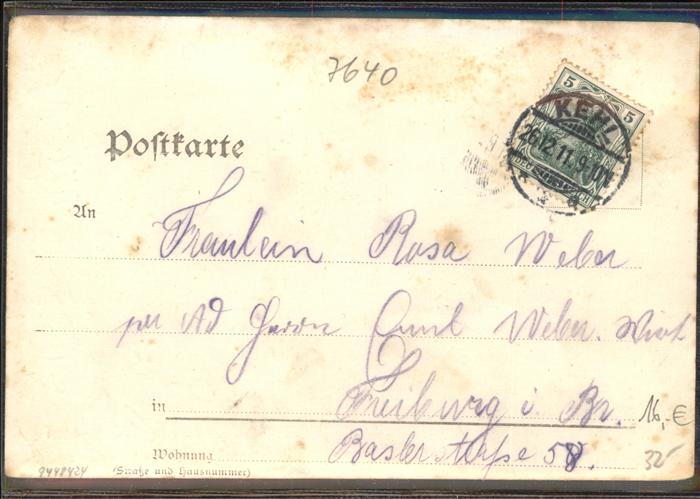 7640
5 5
KEHL
26.12.11.9-10V.
Postkarte
An
Fräulein Rosa Weber
per Ad Herrn Emil Weber. Wirt
in Freiburg i. Br. 16,-€
Wohnung Baslerstraße 58. 32-
9448424 (Straße und Hausnummer)